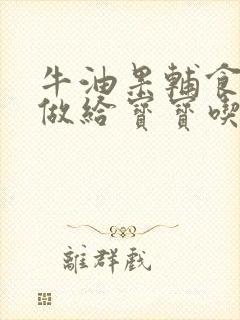 牛油果輔食
做給寶寶喫
離群戲